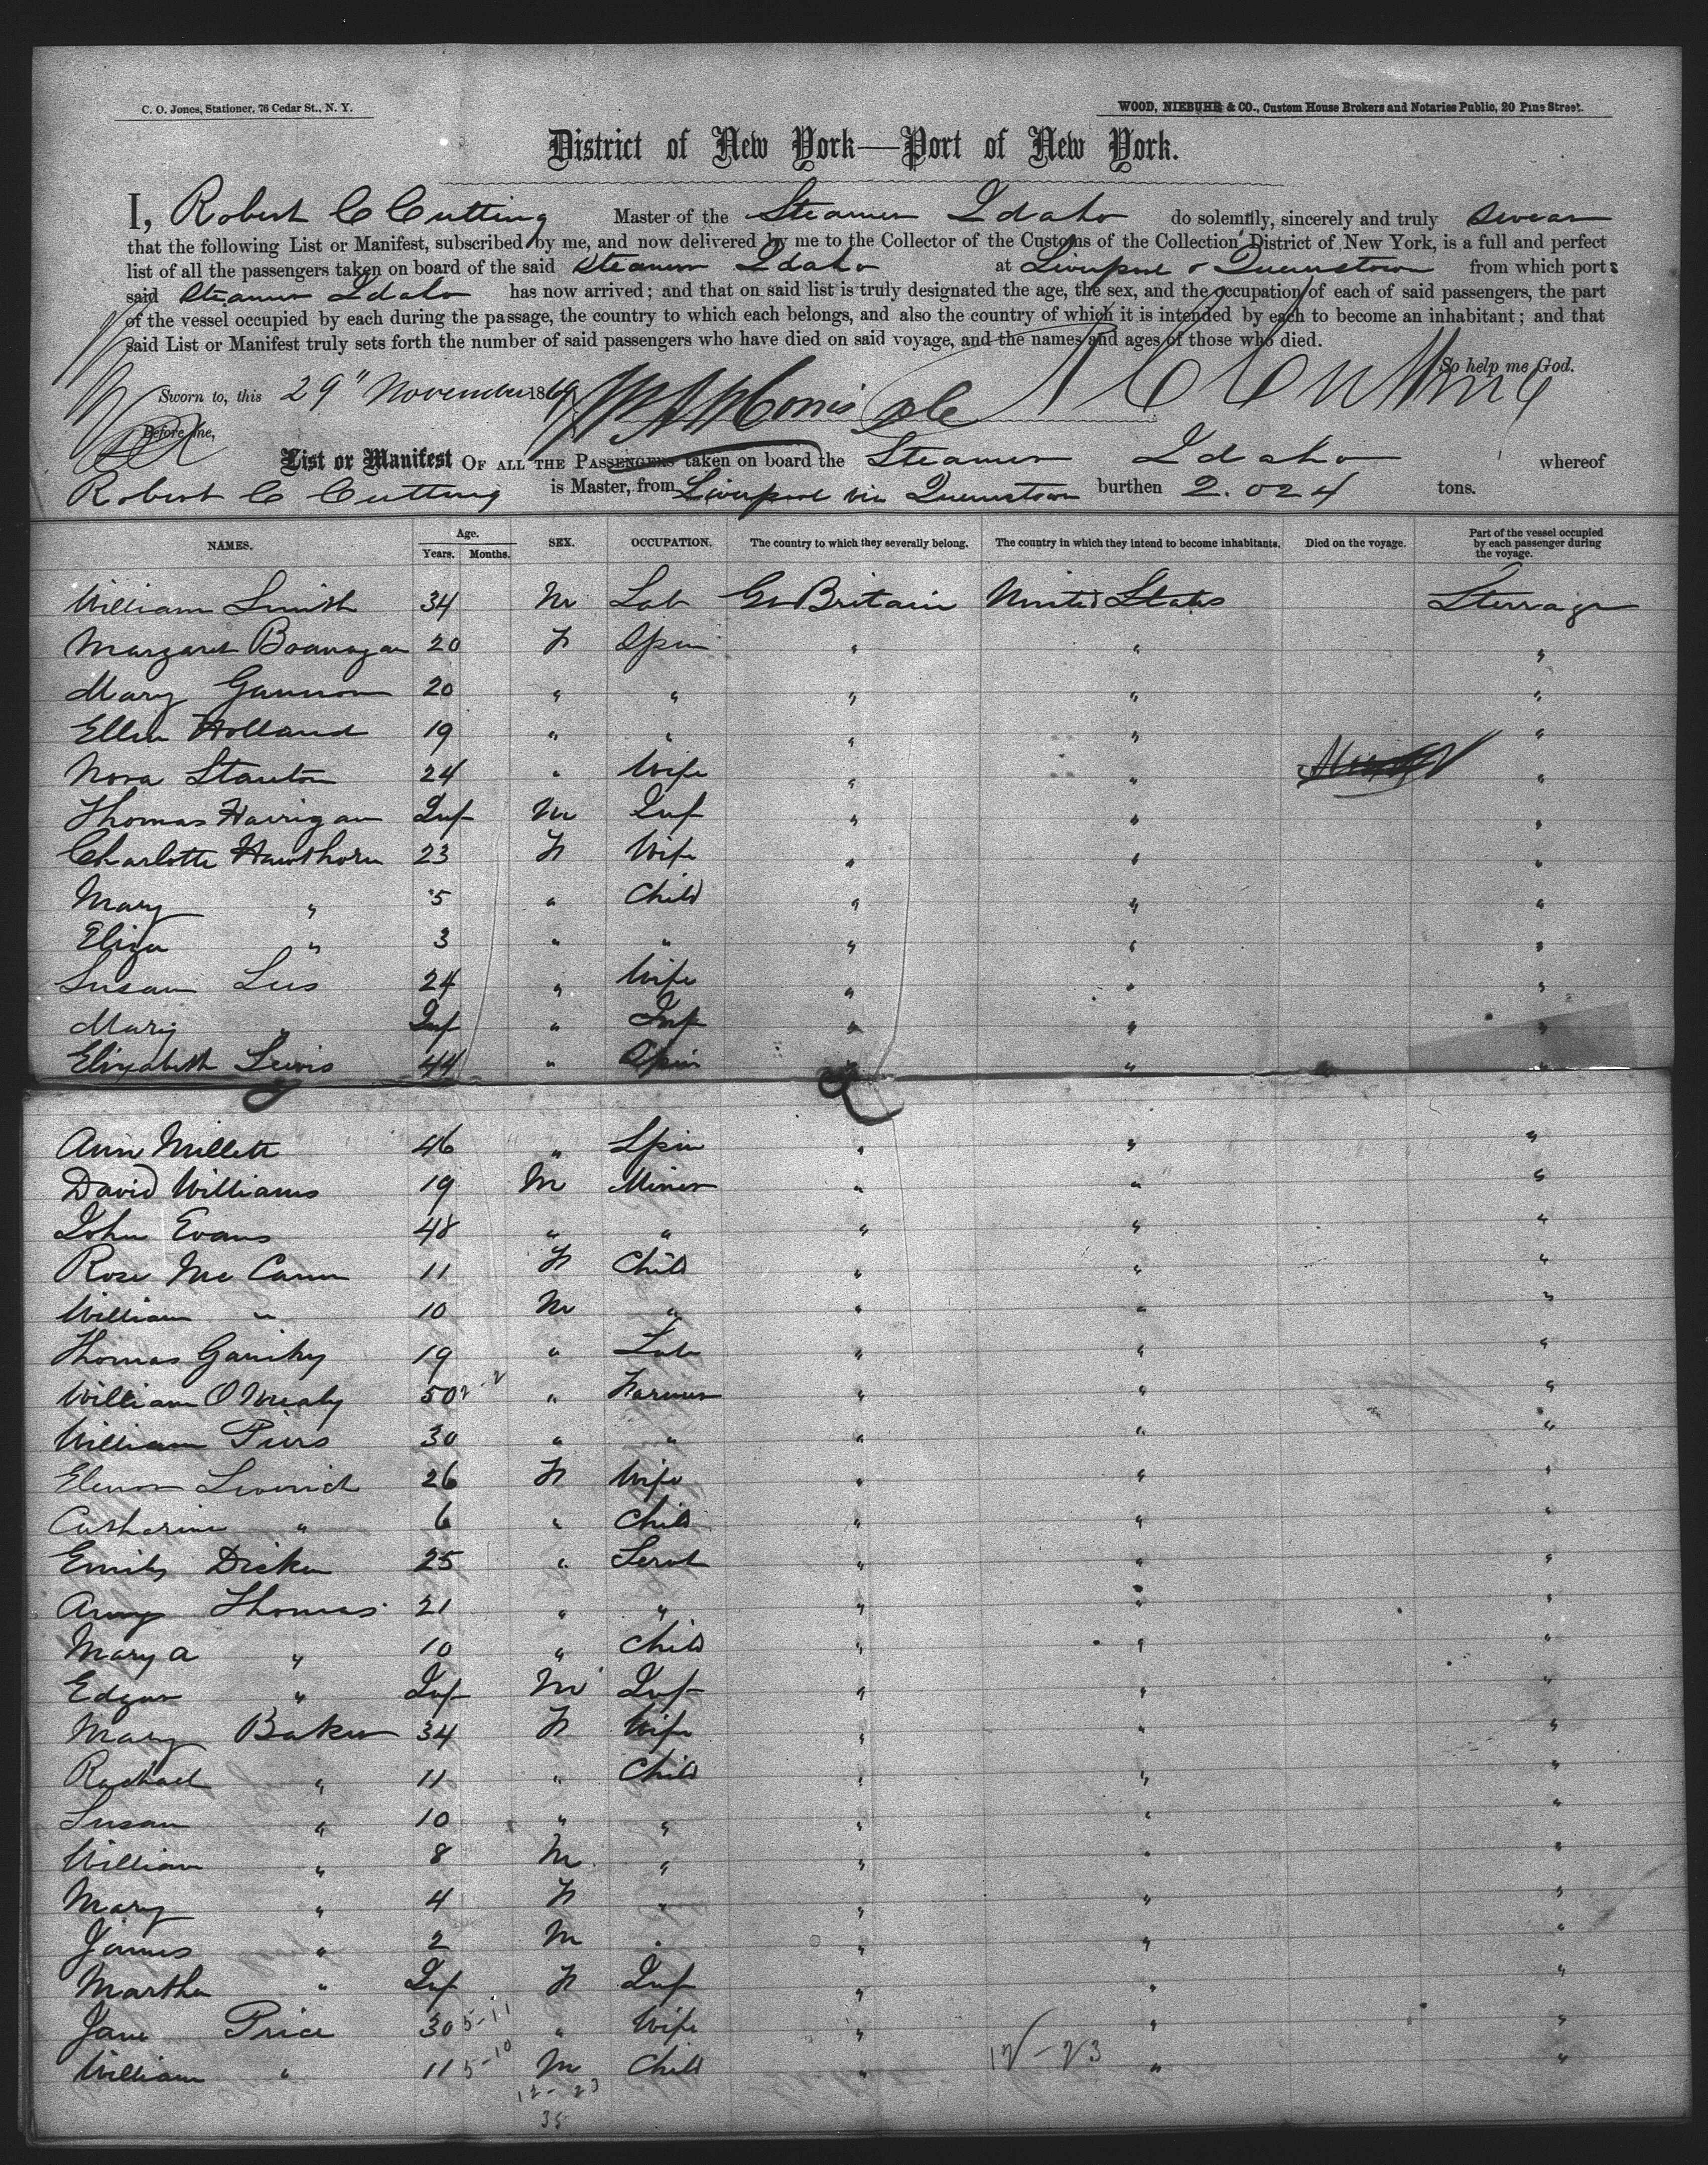 C. O. Jones, Stationer, 76 Cedar St., N. Y.
WOOD, NIEBUHR & CO., Custom House Brokers and Notaries Public, 20 Pine Street.
District of New York—Port of New York.
I, Robert C Cutting Master of the Steamer Idaho do solemnly, sincerely and truly swear
that the following List or Manifest, subscribed by me, and now delivered by me to the Collector of the Customs of the Collection District of New York, is a full and perfect
list of all the passengers taken on board of the said Steamer Idaho at Liverpool & Queenstown from which ports
said Steamer Idaho has now arrived; and that on said list is truly designated the age, the sex, and the occupation of each of said passengers, the part
of the vessel occupied by each during the passage, the country to which each belongs, and also the country of which it is intended by each to become an inhabitant; and that
said List or Manifest truly sets forth the number of said passengers who have died on said voyage, and the names and ages of those who died.
So help me God.
Sworn to, this 29" November 1869 R C Cutting
Before me,
List or Manifest OF ALL THE PASSENGERS taken on board the Steamer Idaho whereof
Robert C Cutting is Master, from Liverpool via Queenstown burthen 2.024 tons.
NAMES. Age. Years. Months. SEX. OCCUPATION. The country to which they severally belong. The country in which they intend to become inhabitants. Died on the voyage. Part of the vessel occupied by each passenger during the voyage.
William Smith 34 M Lab Gr Britain United States Steerage
Margaret Branagan 20 F Spin " " "
Mary Gannon 20 " " " " "
Ellen Holland 19 " " " " "
Nora Stanton 24 " Wife " " "
Thomas Harrigan Inf M Inf " " "
Charlotte Hawthorn 23 F Wife " " "
Mary " 5 " Child " " "
Eliza " 3 " " " " "
Susan Lees 24 " Wife " " "
Mary " Inf " Inf " " "
Elizabeth Lewis 44 " Spin " " "
Ann Millett 46 " Spin " " "
David Williams 19 M Miner " " "
John Evans 48 " " " " "
Rose Mc Cann 11 F Child " " "
William " 10 M " " " "
Thomas 19 " Lab " " "
William 50 " Farmer " " "
William Piers 30 " " " " "
26 F Wife " " "
Catherine " 6 " Child " " "
Emily Dicken 25 " Servt " " "
Thomas 21 " " " " "
Mary A " 10 " Child " " "
Edgar " Inf M Inf " " "
Mary Baker 34 F Wife " " "
Rachael " 11 " Child " " "
Susan " 10 " " " " "
William " 8 M " " " "
Mary " 4 F " " " "
James " 2 M " " " "
Martha " Inf F Inf " " "
Jane Price 30 5-11 " Wife " " "
William " 11 5-10 M Child " 12-23 " "
12-23
35